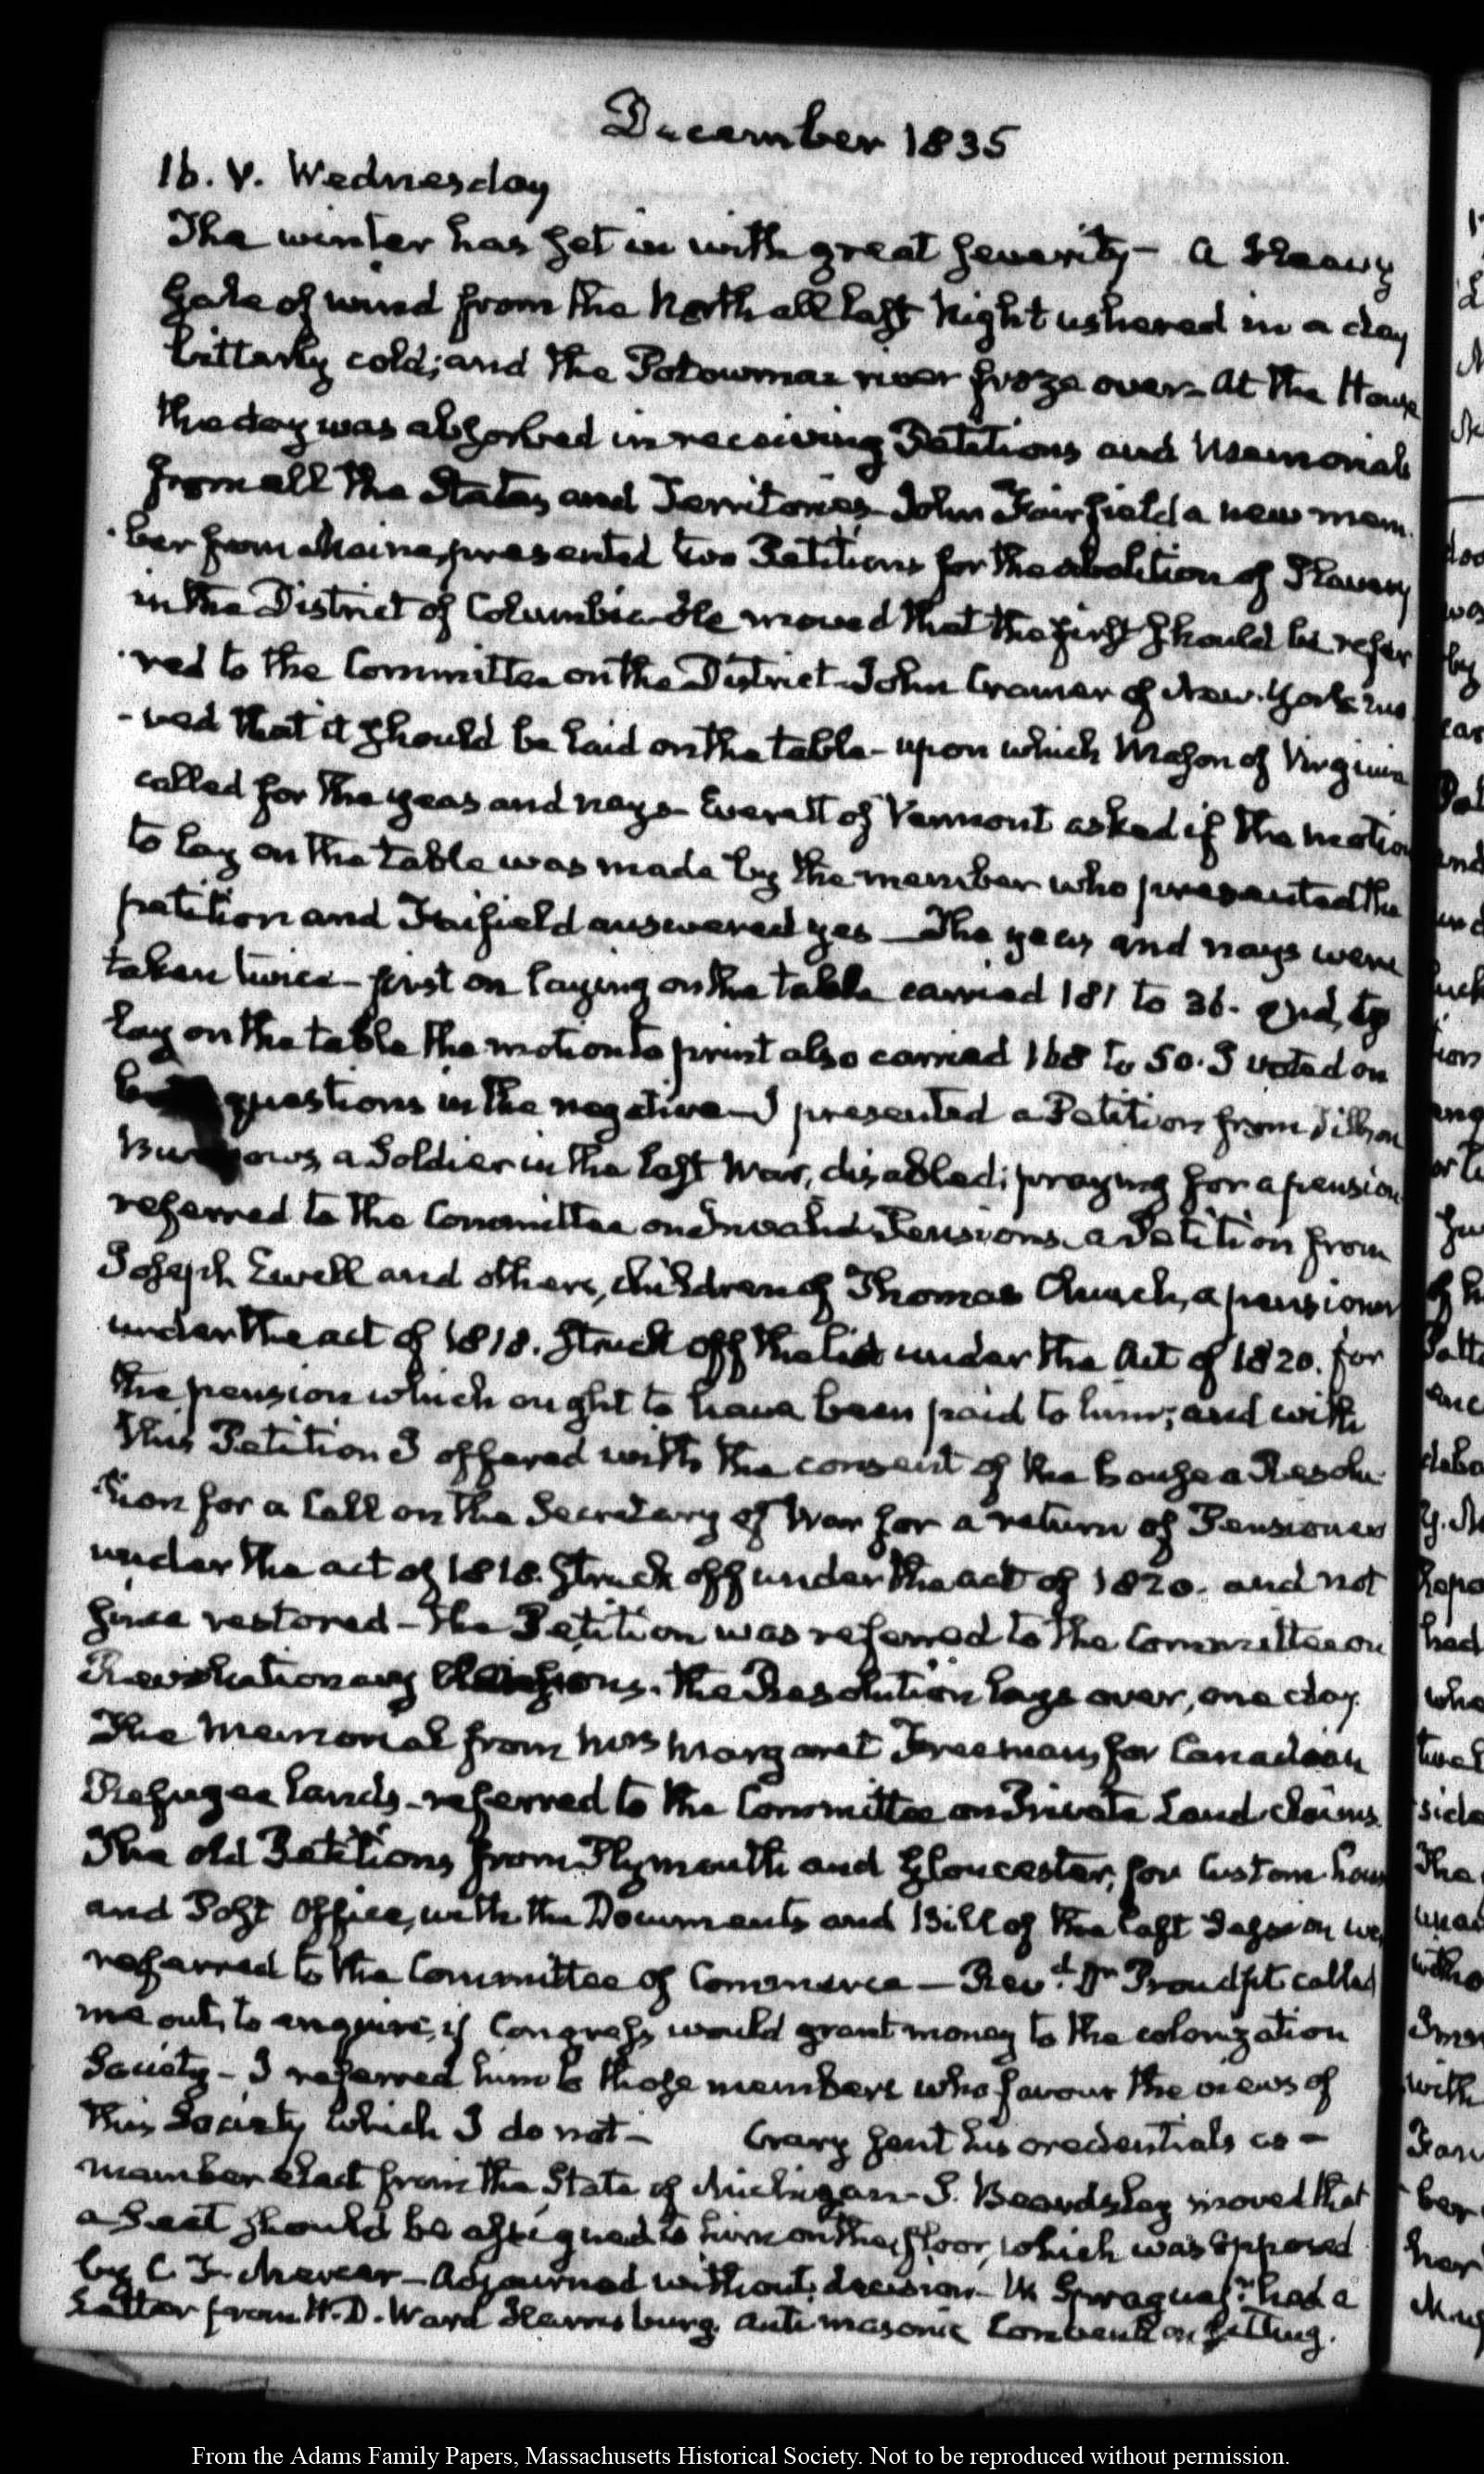 December 1835
16. V. Wednesday
The winter has set in with great severity – A Heavy
gale of wind from the North all last Night ushered in a day
bitterly cold; and the Potowmac river froze over – At the House
the day was absorbed in receiving Petitions and Memorials
from all the States, and Territories – John Fairfield a new mem
ber from Maine, presented two Petitions for the abolition of Slavery
in the District of Columbia – He moved that the first should be refer
red to the Committee on the District – John Cramer of New-York mo
-ved that it should be laid on the table – upon which Mason of Virginia
called for the yeas and nays – Everett of Vermont asked if the motion
to lay on the table was made by the member who presented the
petition and Fairfield answered yes – The yeas and nays were
taken twice – first on laying on the table carried 181 to 36. and, to
lay on the table the motion to print also carried 168 to 50. I voted on
questions in the negative – I presented a Petition from
a Soldier in the last War, disabled; praying for a pension
referred to the Committee on Invalid Pensions – a Petition from
Joseph Ewell and others, children of Thomas Church, a pensioner
under the act of 1818. struck off the list under the Act of 1820. for
the pension which ought to have been paid to him; and with
this Petition I offered with the consent of the house a Resolu
tion for a Call on the Secretary of War for a return of Pensioners
under the act of 1818. struck off under the act of 1820. and not
since restored – the Petition was referred to the Committee on
Revolutionary the Resolution lays over, one day.
The Memorial from Mrs Margaret Freeman, for Canadian
Refugee lands – referred to the Committee on Private Land claims.
The old Petitions from Plymouth and Gloucester, for Custom house
and Post Office, with the Documents and Bill of the last Session we
referred to the Committee of Commerce – Revd. Dr Proudfit called
me out, to enquire, if Congress would grant money to the colonization
Society – I referred him to those members who favour the views of
this Society which I do not – Crary sent his credentials as –
member elect from the State of Michigan – S. Beardsley moved that
a Seat should be assigned to him on the floor, which was opposed
by C. F. Mercer – Adjourned without decision – W. Sprague jr. had a
Letter from H. D. Ward Harrisburg. Antimasonic Convention sitting.
From the Adams Family Papers, Massachusetts Historical Society. Not to be reproduced without permission.